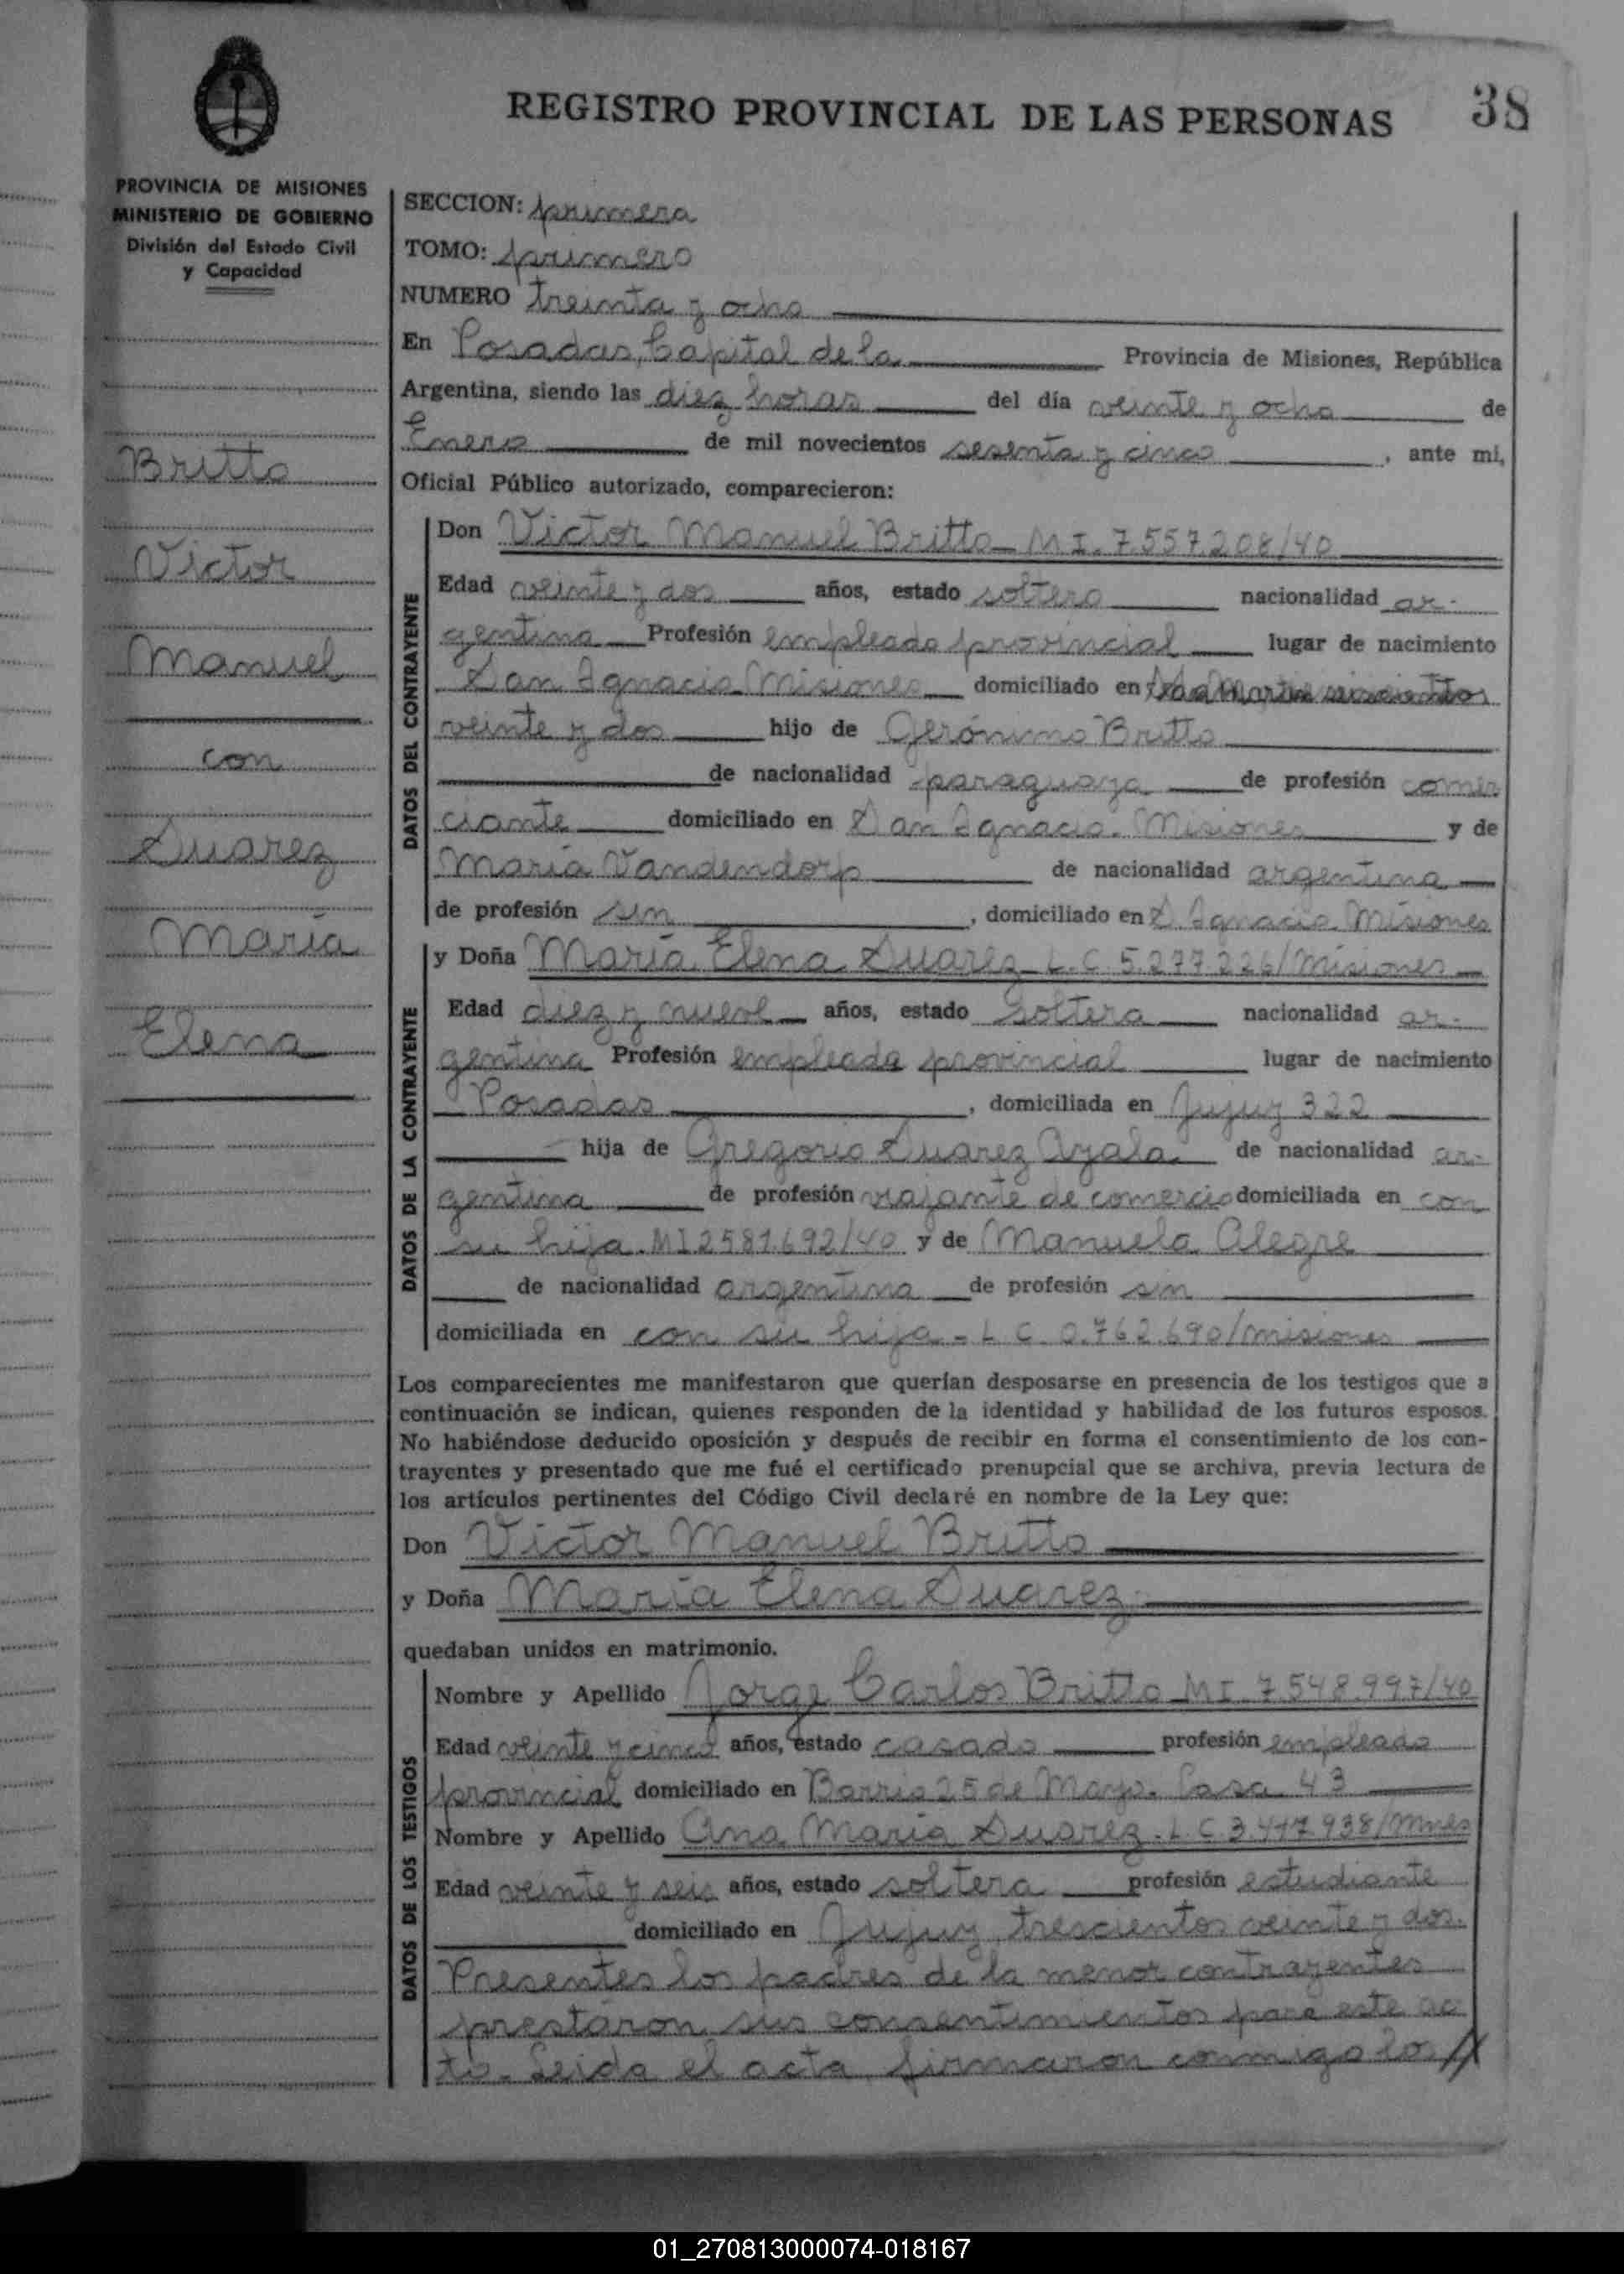 REGISTRO PROVINCIAL DE LAS PERSONAS
38
PROVINCIA DE MISIONES
MINISTERIO DE GOBIERNO
División del Estado Civil
y Capacidad
Britto
Victor
Manuel
con
Suarez
María
Elena
SECCION: primera
TOMO: primero
NUMERO treinta y ocho
En Posadas, Capital de la Provincia de Misiones, República
Argentina, siendo las diez horas del día veinte y ocho de
Enero de mil novecientos sesenta y cinco, ante mi,
Oficial Público autorizado, comparecieron:
DATOS DEL CONTRAYENTE
Don Victor Manuel Britto MI. 7.557.208/40
Edad veinte y dos años, estado soltero nacionalidad ar-
gentina Profesión empleado provincial lugar de nacimiento
San Ignacio Misiones domiciliado en
veinte y dos hijo de Gerónimo Britto
de nacionalidad paraguaya de profesión comer
ciante domiciliado en San Ignacio. Misiones y de
María Vandendorp de nacionalidad argentina
de profesión sin, domiciliado en S. Ignacio. Misiones
DATOS DE LA CONTRAYENTE
y Doña María Elena Suarez L.C. 5.277.226/Misiones
Edad diez y nueve años, estado soltera nacionalidad ar-
gentina Profesión empleada provincial lugar de nacimiento
Posadas, domiciliada en Jujuy 322
hija de Gregorio Suarez Ayala de nacionalidad ar-
gentina de profesión viajante de comercio domiciliada en con
su hija. MI 2581.692/40 y de Manuela Alegre
de nacionalidad argentina de profesión sin
domiciliada en con su hija - L.C. 0.762.690/misiones
Los comparecientes me manifestaron que querían desposarse en presencia de los testigos que a
continuación se indican, quienes responden de la identidad y habilidad de los futuros esposos.
No habiéndose deducido oposición y después de recibir en forma el consentimiento de los con-
trayentes y presentado que me fué el certificado prenupcial que se archiva, previa lectura de
los artículos pertinentes del Código Civil declaré en nombre de la Ley que:
Don Victor Manuel Britto
y Doña María Elena Suarez
quedaban unidos en matrimonio.
DATOS DE LOS TESTIGOS
Nombre y Apellido Jorge Carlos Britto MI. 7.548.997/40
Edad veinte y cinco años, estado casado profesión empleado
provincial domiciliado en Barrio 25 de Mayo. Casa 43
Nombre y Apellido Ana María Suarez. L.C. 3.417.938/Mnes
Edad veinte y seis años, estado soltera profesión estudiante
domiciliado en Jujuy trescientos veinte y dos.
Presentes los padres de la menor contrayentes
prestaron sus consentimientos para este ac
to. Leída el acta, firmaron conmigo los //
01_270813000074-018167